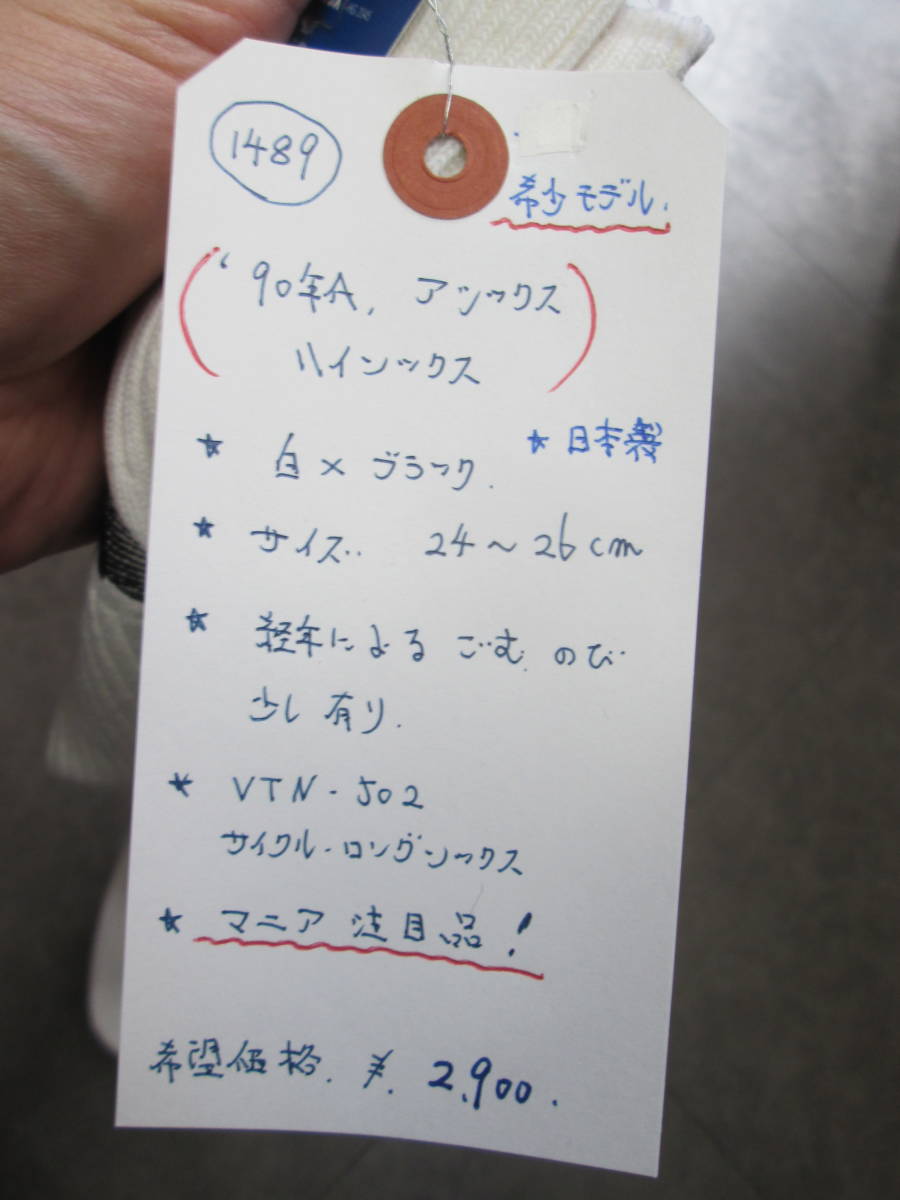 1489
希少モデル.
'90年A, アシックス
ハイソックス
★日本製
★ 白×ブラック.
★ サイズ.. 24～26cm
★ 経年による ごむ のび
少し有り.
★ VTN-502
サイクル・ロングソックス
★ マニア 注目品!
希望価格. ¥. 2,900.